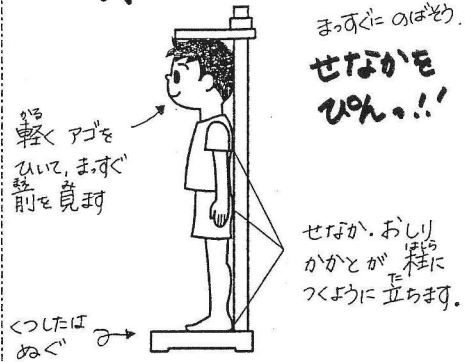 まっすぐに のばそう.
せなかを
ぴんっ!!
軽く アゴを
ひいて, まっすぐ
前を 見ます
せなか・おしり
かかと が 柱に
つくように 立ちます.
くつしたは
ぬぐ